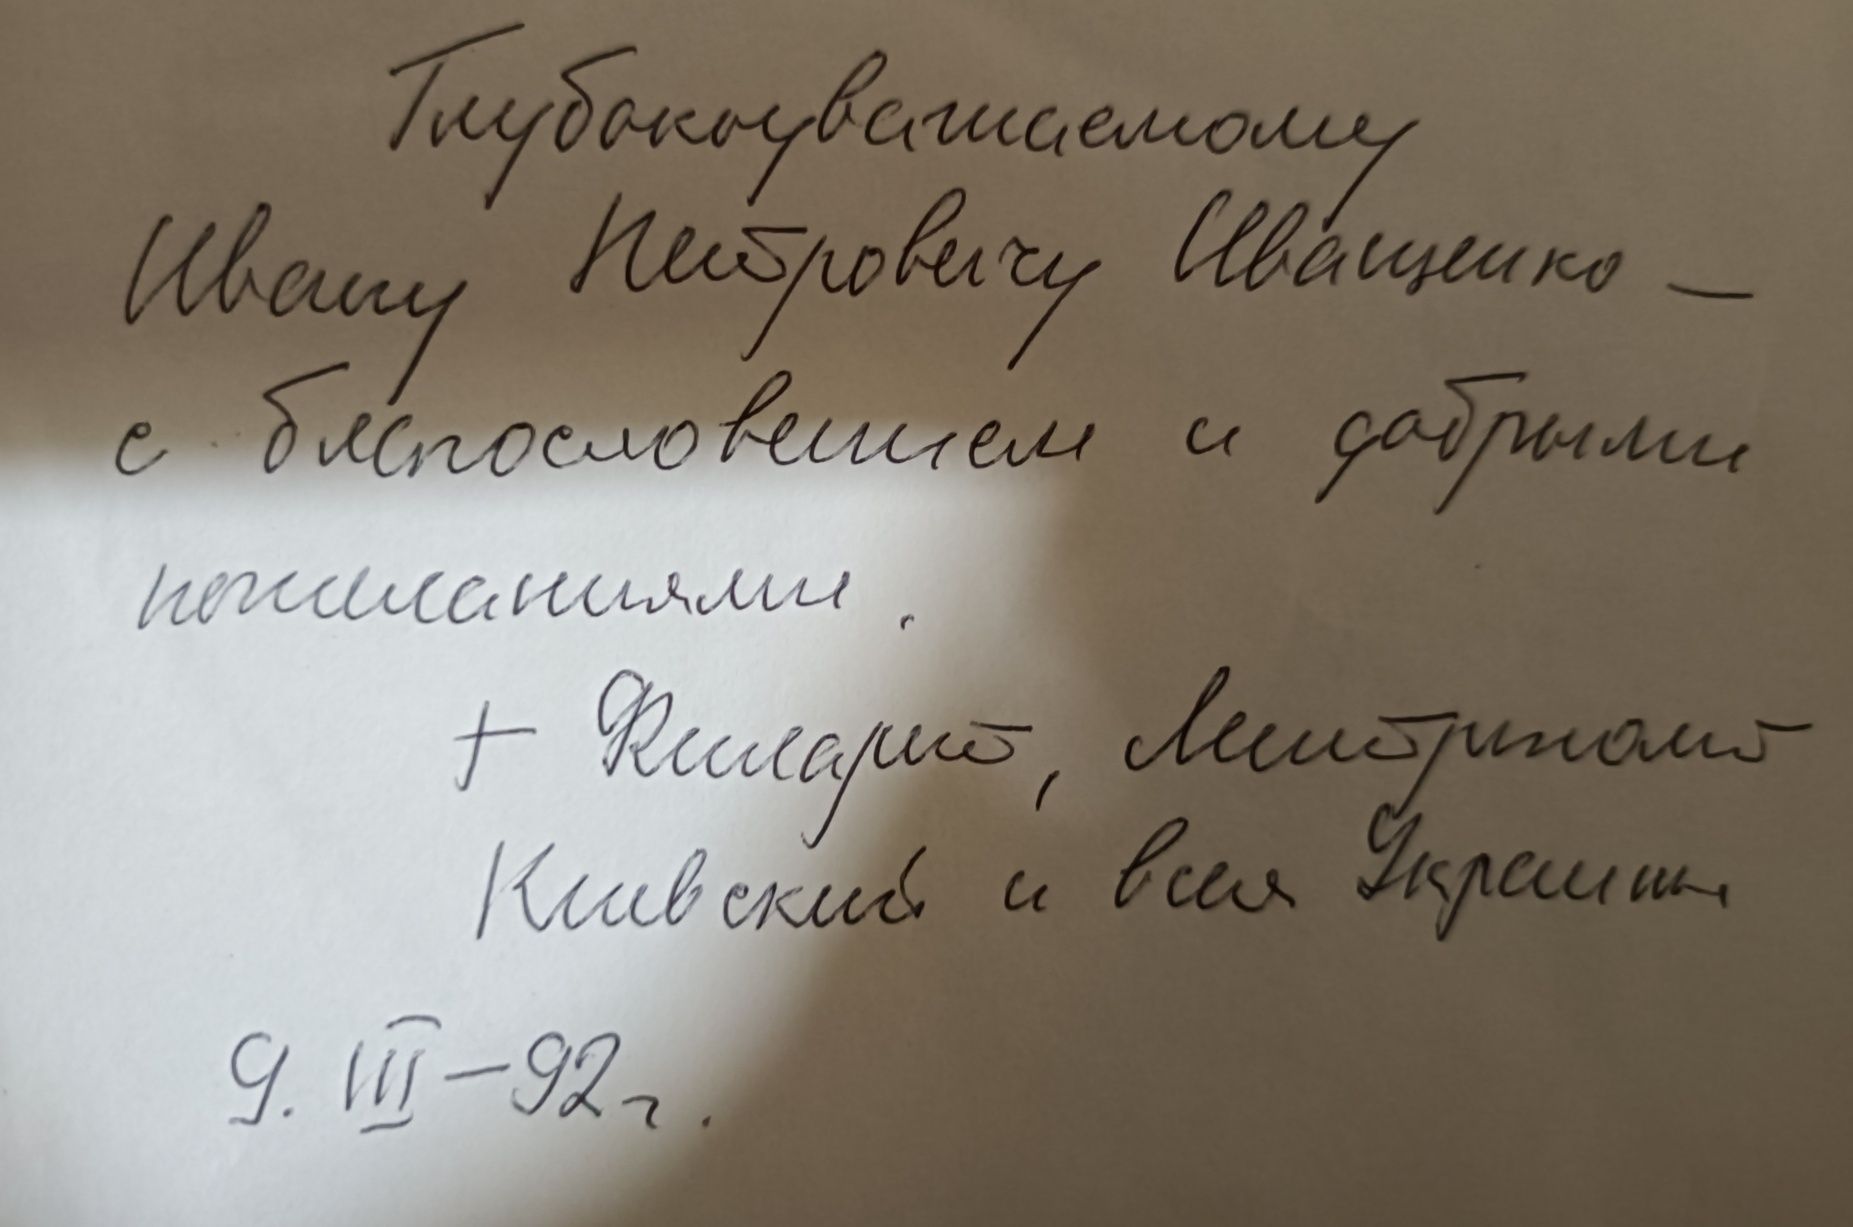 Глубокоуважаемому
Ивану Петровичу Иващенко —
с благословением и добрыми
пожеланиями.
+ Филарет, Митрополит
Киевский и всея Украины
9. III – 92 г.